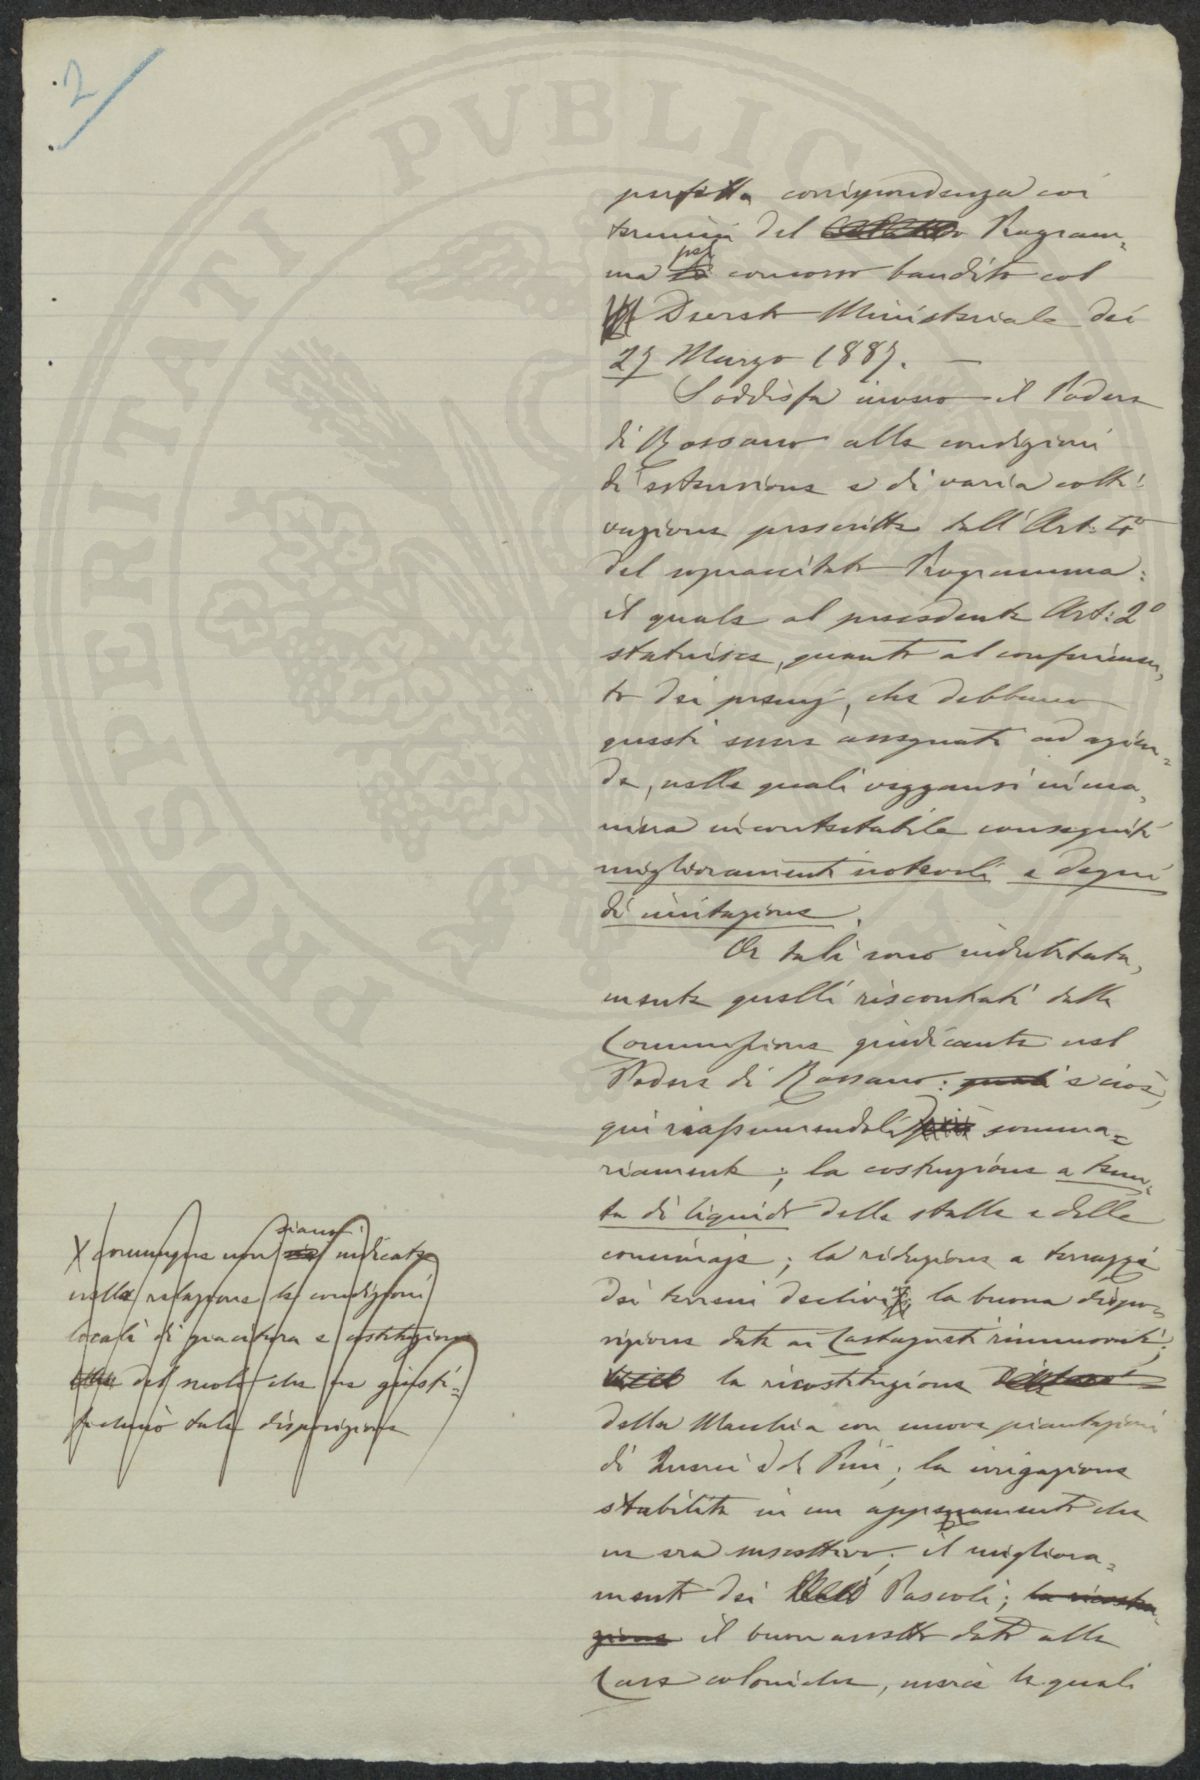 2
perfetta corrispondenza coi
termini del Program=
ma pel concorso bandito col
Decreto Ministeriale dei
27 Marzo 1887. —
Soddisfa invero il Podere
di Rossano alle condizioni
di estensione e di varia colti=
vazione prescritte dall'Art: 4º
del sopraccitato Programma:
il quale al precedente Art: 2º
statuisce, quanto al conferimen,
to dei premj, che debbano
questi essere assegnati ad azien=
de, nelle quali veggansi in ma,
niera incontestabile conseguiti
miglioramenti notevoli e degni
di imitazione.
Or tali sono indubitata,
mente quelli riscontrati dalla
Commissione giudicante nel
Podere di Rossano: quali e cioè,
qui riassumendoli più somma=
riamente; la costruzione a tenu=
ta di liquido delle stalle e delle
concimaje; la riduzione a terrazzi
dei terreni declivi; la buona dispo=
sizione data ai Castagneti rinnovati;
la ricostituzione
della Macchia con nuove piantagioni
di Querci e di Pini; la irrigazione
stabilita in un appezzamento che
ne era suscettivo; il migliora=
mento dei Pascoli; la ricostru=
zione il buon assetto dato alle
Case coloniche, mercè le quali
X comunque non siano indicate
nella relazione le condizioni
locali di giacitura e costituzione
del suolo che ne giusti=
tale disposizione
PROSPERITATI PVBLICAE